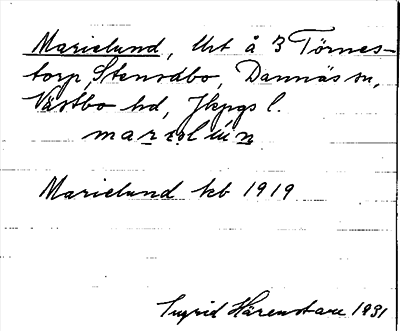 Marielund, Urt å 3 Törnes-
torp, Stensdbo, Dannäs sn,
Västbo hd, Jkpgs l.
Marielund kb 1919
Ingrid Härenstam 1931